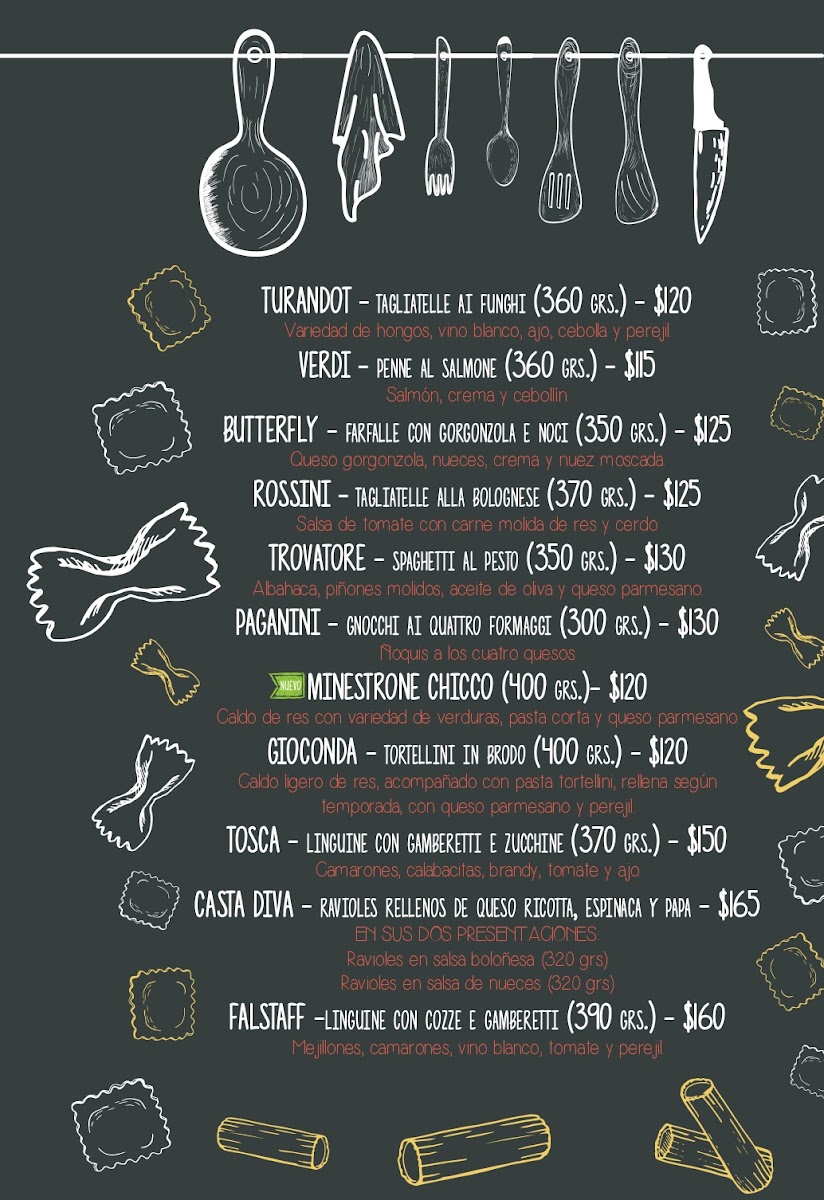 TURANDOT - TAGLIATELLE AI FUNGHI (360 GRS.) - $120
Variedad de hongos, vino blanco, ajo, cebolla y perejil.
VERDI - PENNE AL SALMONE (360 GRS.) - $115
Salmón, crema y cebollín
BUTTERFLY - FARFALLE CON GORGONZOLA E NOCI (350 GRS.) - $125
Queso gorgonzola, nueces, crema y nuez moscada.
ROSSINI - TAGLIATELLE ALLA BOLOGNESE (370 GRS.) - $125
Salsa de tomate con carne molida de res y cerdo
TROVATORE - SPAGHETTI AL PESTO (350 GRS.) - $130
Albahaca, piñones molidos, aceite de oliva y queso parmesano.
PAGANINI - GNOCCHI AI QUATTRO FORMAGGI (300 GRS.) - $130
Ñoquis a los cuatro quesos
NUEVO MINESTRONE CHICCO (400 GRS.)- $120
Caldo de res con variedad de verduras, pasta corta y queso parmesano.
GIOCONDA - TORTELLINI IN BRODO (400 GRS.) - $120
Caldo ligero de res, acompañado con pasta tortellini, rellena según
temporada, con queso parmesano y perejil.
TOSCA - LINGUINE CON GAMBERETTI E ZUCCHINE (370 GRS.) - $150
Camarones, calabacitas, brandy, tomate y ajo.
CASTA DIVA - RAVIOLES RELLENOS DE QUESO RICOTTA, ESPINACA Y PAPA - $165
EN SUS DOS PRESENTACIONES:
Ravioles en salsa boloñesa (320 grs)
Ravioles en salsa de nueces (320 grs)
FALSTAFF -LINGUINE CON COZZE E GAMBERETTI (390 GRS.) - $160
Mejillones, camarones, vino blanco, tomate y perejil.